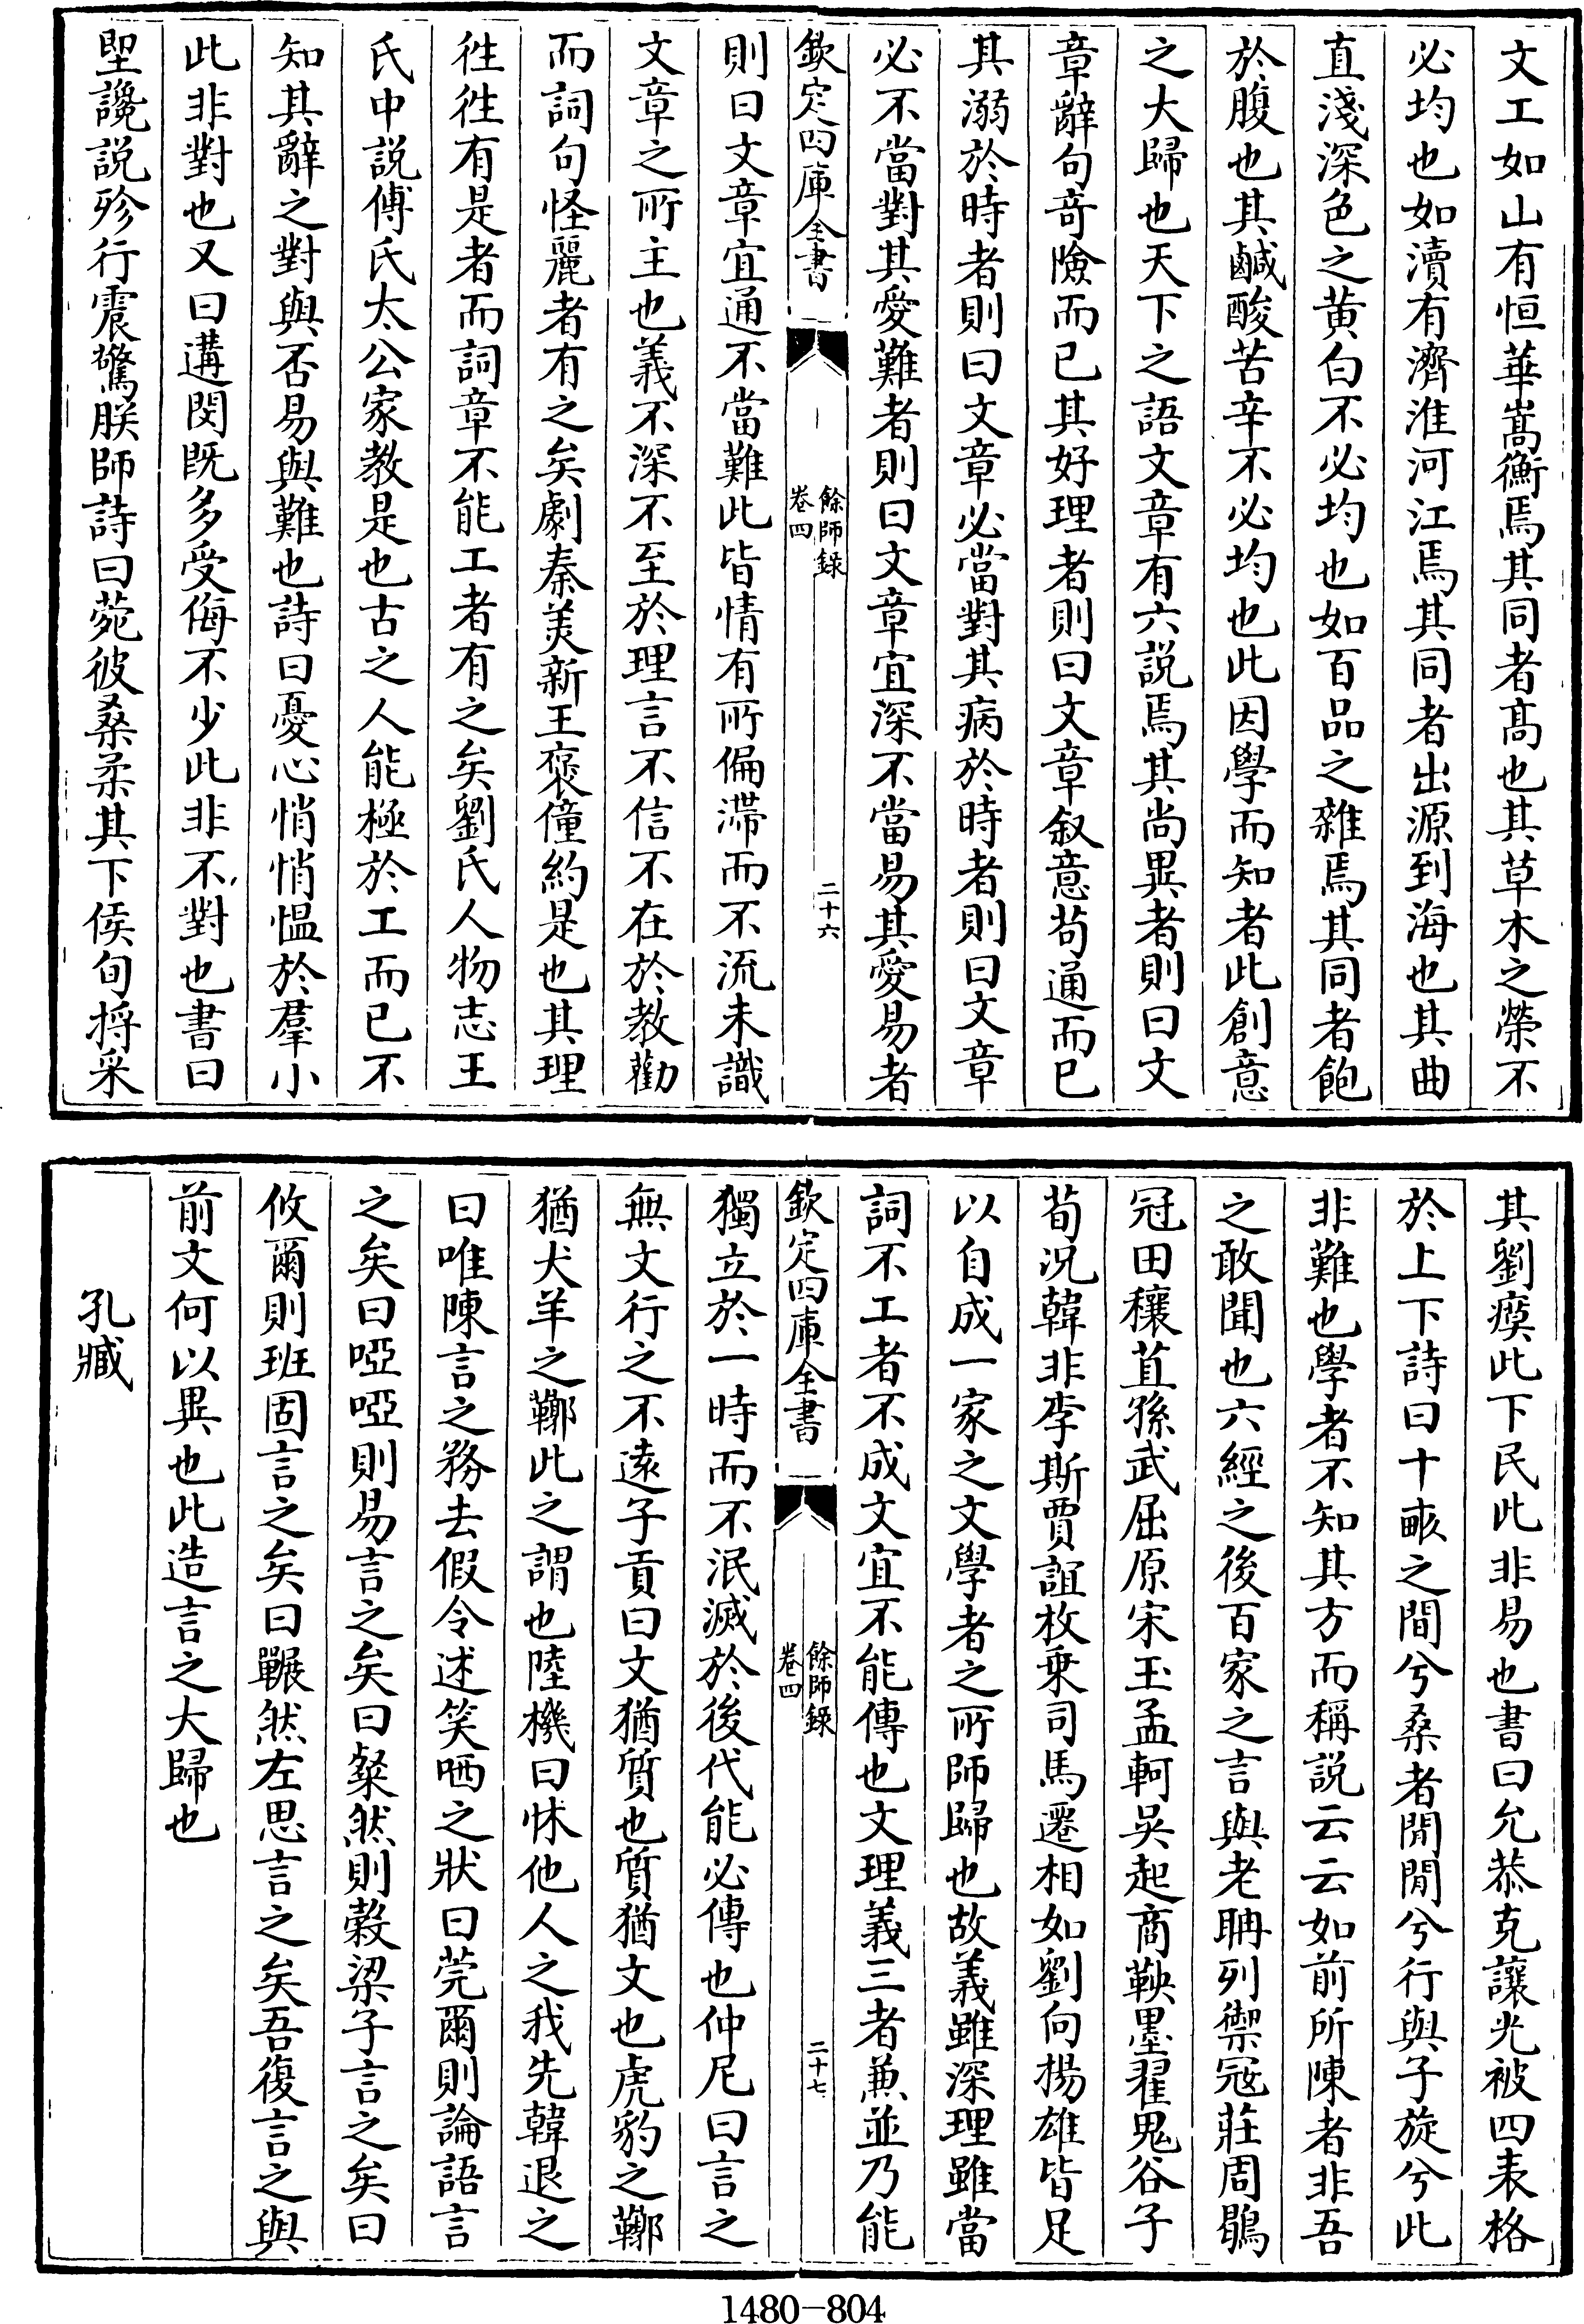 文工如山有恒華嵩衡焉其同者髙也其草木之榮不
必均也如瀆有濟淮河江焉其同者出源到海也其曲
直淺深色之黄白不必均也如百品之雜焉其同者飽
於腹也其鹹酸苦辛不必均也此因學而知者此創意
之大歸也天下之語文章有六説焉其尚異者則曰文
章辭句竒險而已其好理者則曰文章叙意苟通而已
其溺於時者則曰文章必當對其病於時者則曰文章
必不當對其愛難者則曰文章宜深不當易其愛易者
欽定四庫全書
餘師録
卷四
二十六
則曰文章宜通不當難此皆情有所偏滯而不流未識
文章之所主也義不深不至於理言不信不在於教勸
而詞句怪麗者有之矣劇秦美新王褒僮約是也其理
徃徃有是者而詞章不能工者有之矣劉氏人物志王
氏中説傅氏太公家教是也古之人能極於工而已不
知其辭之對與否易與難也詩曰憂心悄悄愠於羣小
此非對也又曰遘閔既多受侮不少此非不對也書曰
堲讒説殄行震驚朕師詩曰菀彼桑柔其下侯旬捋采
其劉瘼此下民此非易也書曰允恭克讓光被四表格
於上下詩曰十畝之間兮桑者閒閒兮行與子旋兮此
非難也學者不知其方而稱説云云如前所陳者非吾
之敢聞也六經之後百家之言與老聃列禦冦莊周鶡
冠田穰苴孫武屈原宋玉孟軻吳起商鞅墨翟鬼谷子
荀況韓非李斯賈誼枚乗司馬遷相如劉向揚雄皆足
以自成一家之文學者之所師歸也故義雖深理雖當
詞不工者不成文宜不能傳也文理義三者兼並乃能
欽定四庫全書
餘師録
卷四
二十七
獨立於一時而不泯滅於後代能必傳也仲尼曰言之
無文行之不逺子貢曰文猶質也質猶文也虎豹之鞹
猶犬羊之鞹此之謂也陸機曰怵他人之我先韓退之
曰唯陳言之務去假令述笑哂之狀曰莞爾則論語言
之矣曰啞啞則易言之矣曰粲然則榖梁子言之矣曰
攸爾則班固言之矣曰囅然左思言之矣吾復言之與
前文何以異也此造言之大歸也
孔臧
1480-804